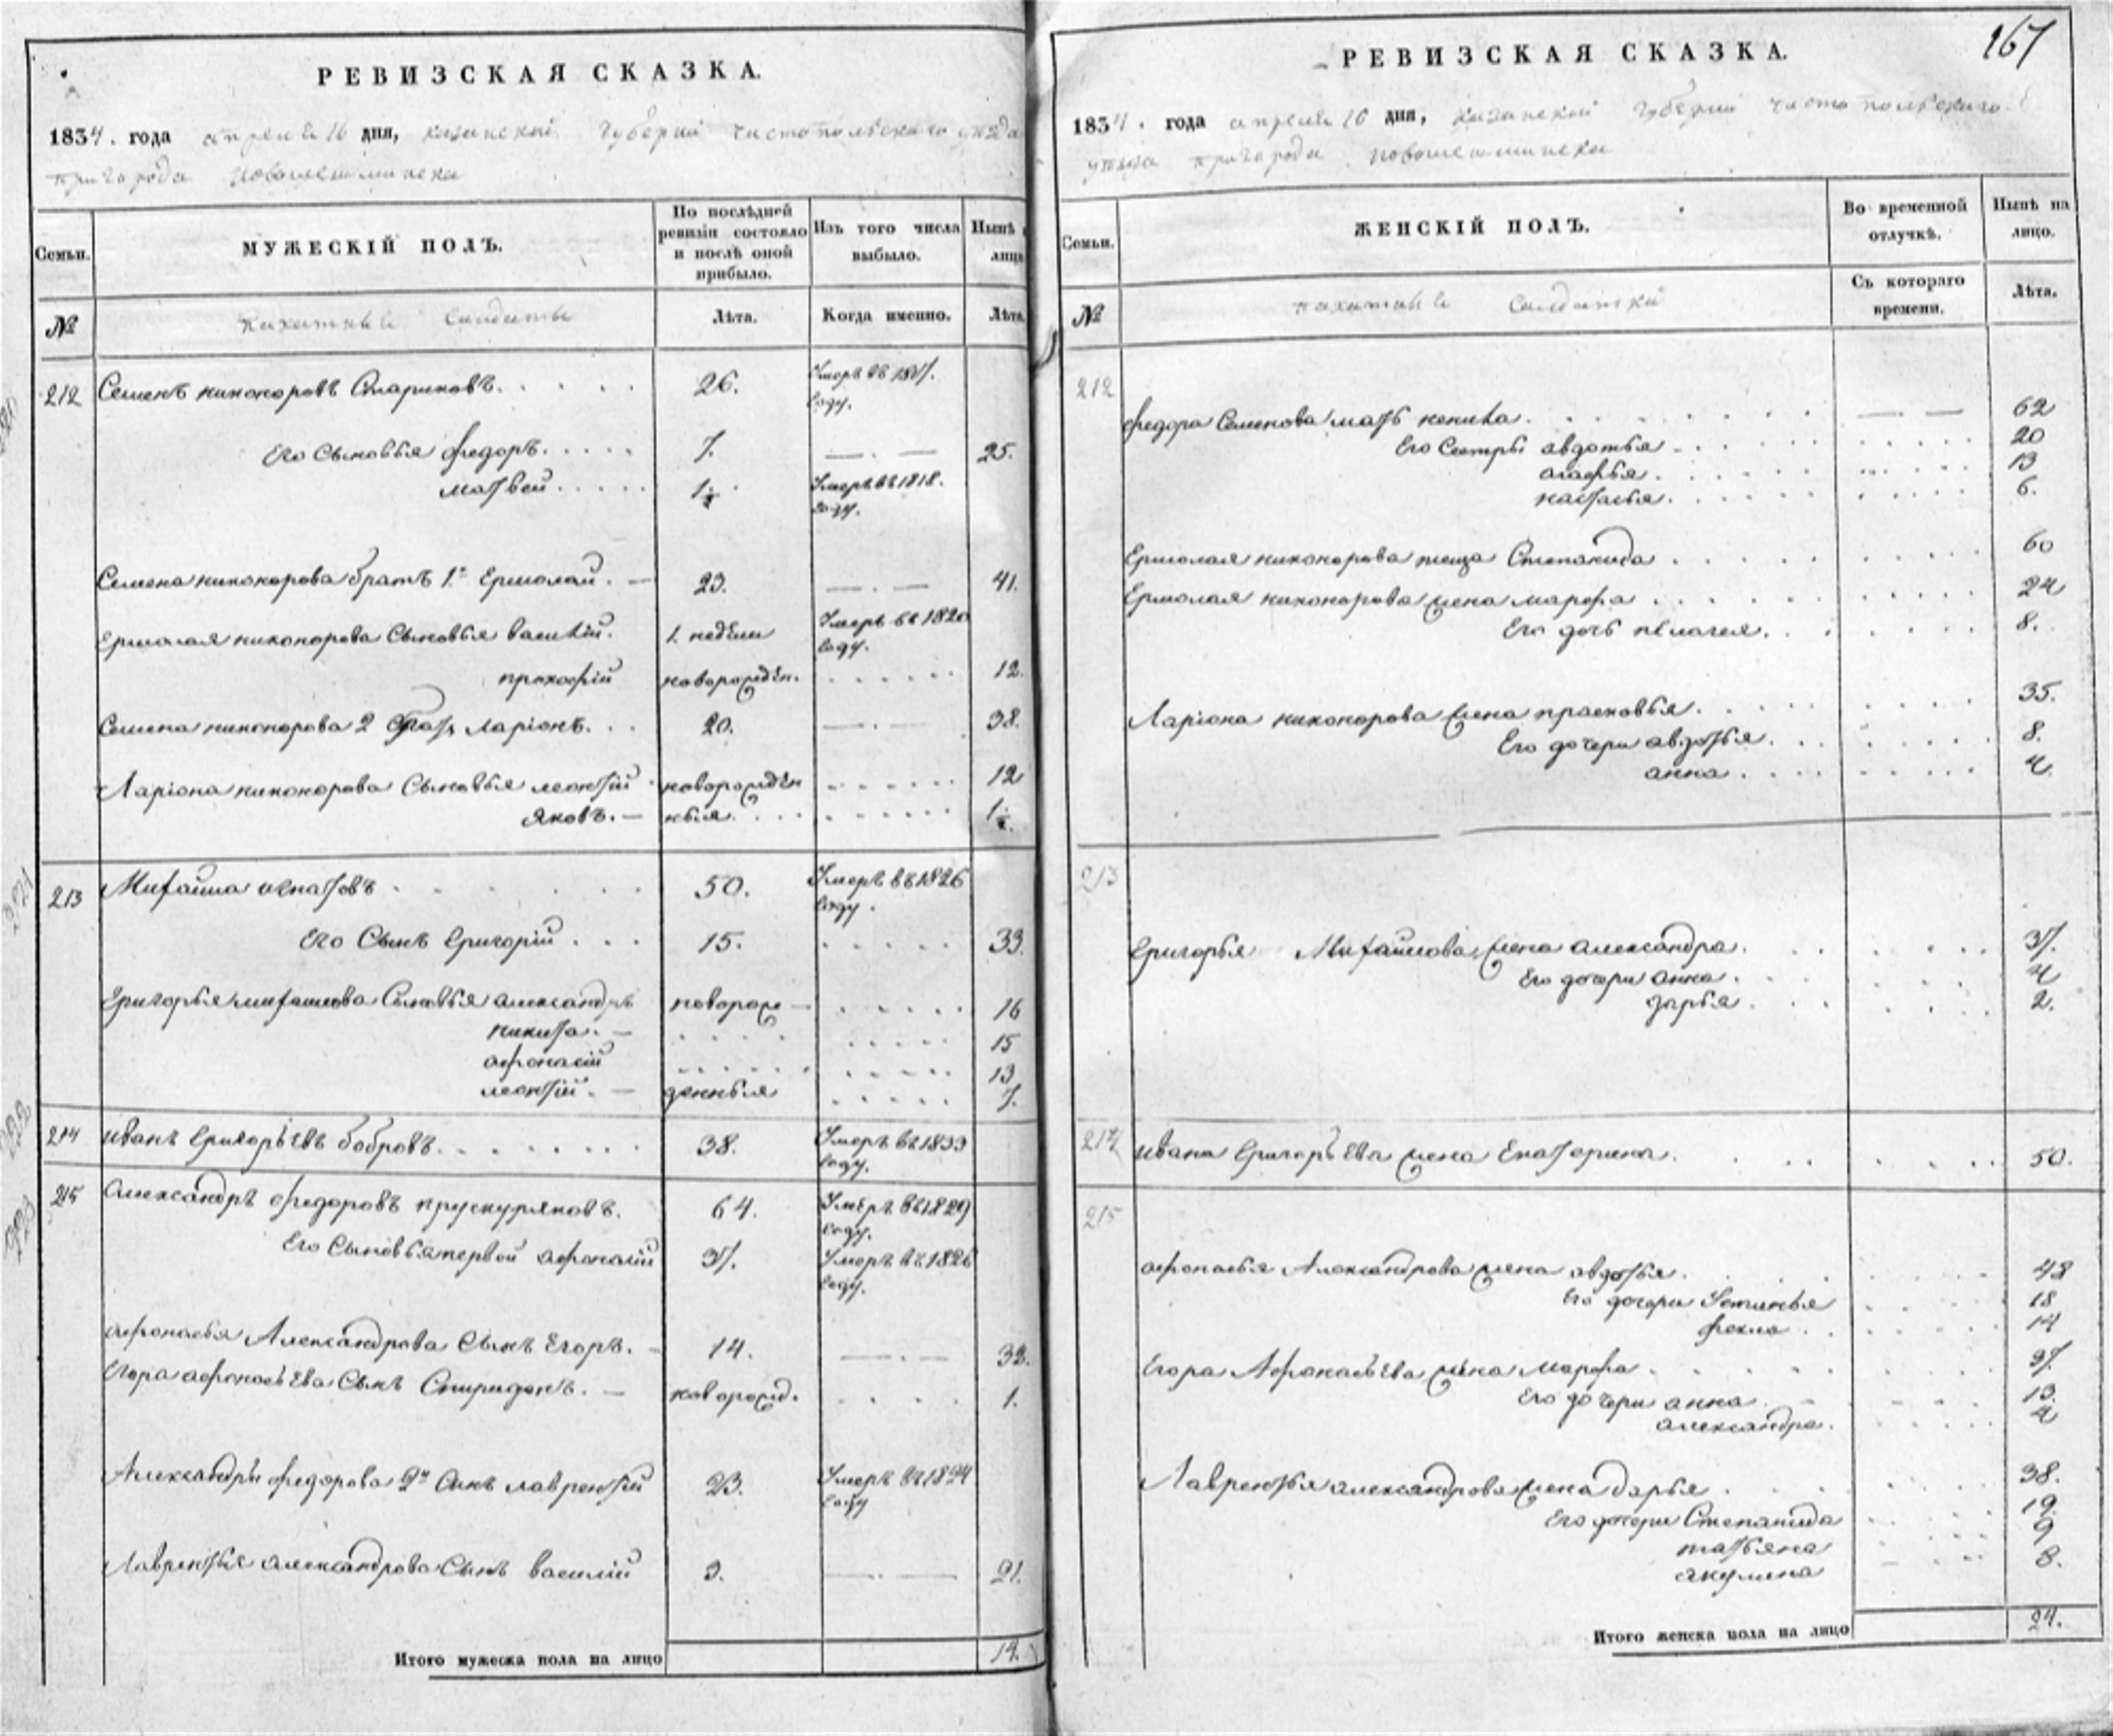 РЕВИЗСКАЯ СКАЗКА.
1834. года апреля 16 дня, казанской губернии чистопольскаго уезда
пригорода новошешминска
Семьи.
МУЖЕСКІЙ ПОЛЪ.
По послѣдней ревизіи состояло и послѣ оной прибыло.
Изъ того числа выбыло.
Нынѣ лицо
№
пахатные солдаты
Лѣта.
Когда именно.
Лѣта
212 Семенъ никоноровъ Стариковъ. 26. Умеръ въ 1827. году.
Его Сыновья федоръ. 7. 25.
матвей 1½ Умеръ въ 1818. году.
Семена никонорова братъ 1й Ермолай. 23. 41.
Ермолая никонорова Сыновья василій. 1. недели Умеръ въ 1820 году.
прокофій новорожден. 12.
Семена никонорова 2 братъ Ларіонъ. 20. 38.
Ларіона никонорова Сыновья леонтій новорожден 12
яковъ. ныя. 1½.
213 Мифаила игнатовъ 50. Умеръ въ 1826 году.
Его Сынъ григорій 15. 33.
григорья мифаилова Сыновья александръ новорож 16
никита. 15
афонасій 13
леонтій. денныя 7.
214 иванъ григорьевъ бобровъ. 38. Умеръ въ 1833 году.
215 Александръ федоровъ прускуряковъ. 64. Умеръ въ 1829 году.
Его Сыновья первой афонасій 37. Умеръ въ 1826 году.
афонасья Александрова Сынъ Егоръ. 14. 32.
Егора афонасьева Сынъ Спиридонъ. новорожд. 1.
Александра федорова 2й Сынъ лаврентій 23. Умеръ въ 1824 году
Лаврентья александрова Сынъ василій 3. 21.
Итого мужеска пола на лицо 14.
167
РЕВИЗСКАЯ СКАЗКА.
1834. года апреля 16 дня, казанской губернии чистопольскаго
уезда пригорода новошешминска
Семьи.
ЖЕНСКІЙ ПОЛЪ.
Во временной отлучкѣ.
Нынѣ на лицо.
№
пахатные солдатки
Съ котораго времени.
Лѣта.
212
федора Семенова мать ненила. 62
Его Сестры авдотья 20
агафья. 13
настасья. 6.
Ермолая никонорова теща Степанида 60
Ермолая никонорова жена марфа 24
Его дочь пелагея. 8.
Ларіона никонорова жена прасковья. 35.
Его дочери авдотья. 8.
анна. 4.
213
григорья Мифаилова жена александра. 37.
Его дочери анна. 4
дарья 2.
214 ивана григорьева жена Екатерина. 50.
215
афонасья Александрова жена авдотья. 48
Его дочери Устинья 18
фекла. 14
Егора Афонасьева жена марфа. 37.
Его дочери анна 13.
александра. 4
Лаврентья александрова жена дарья 38.
Его дочери Степанида 19.
татьяна 9
акулина 8.
Итого женска пола на лицо 24.